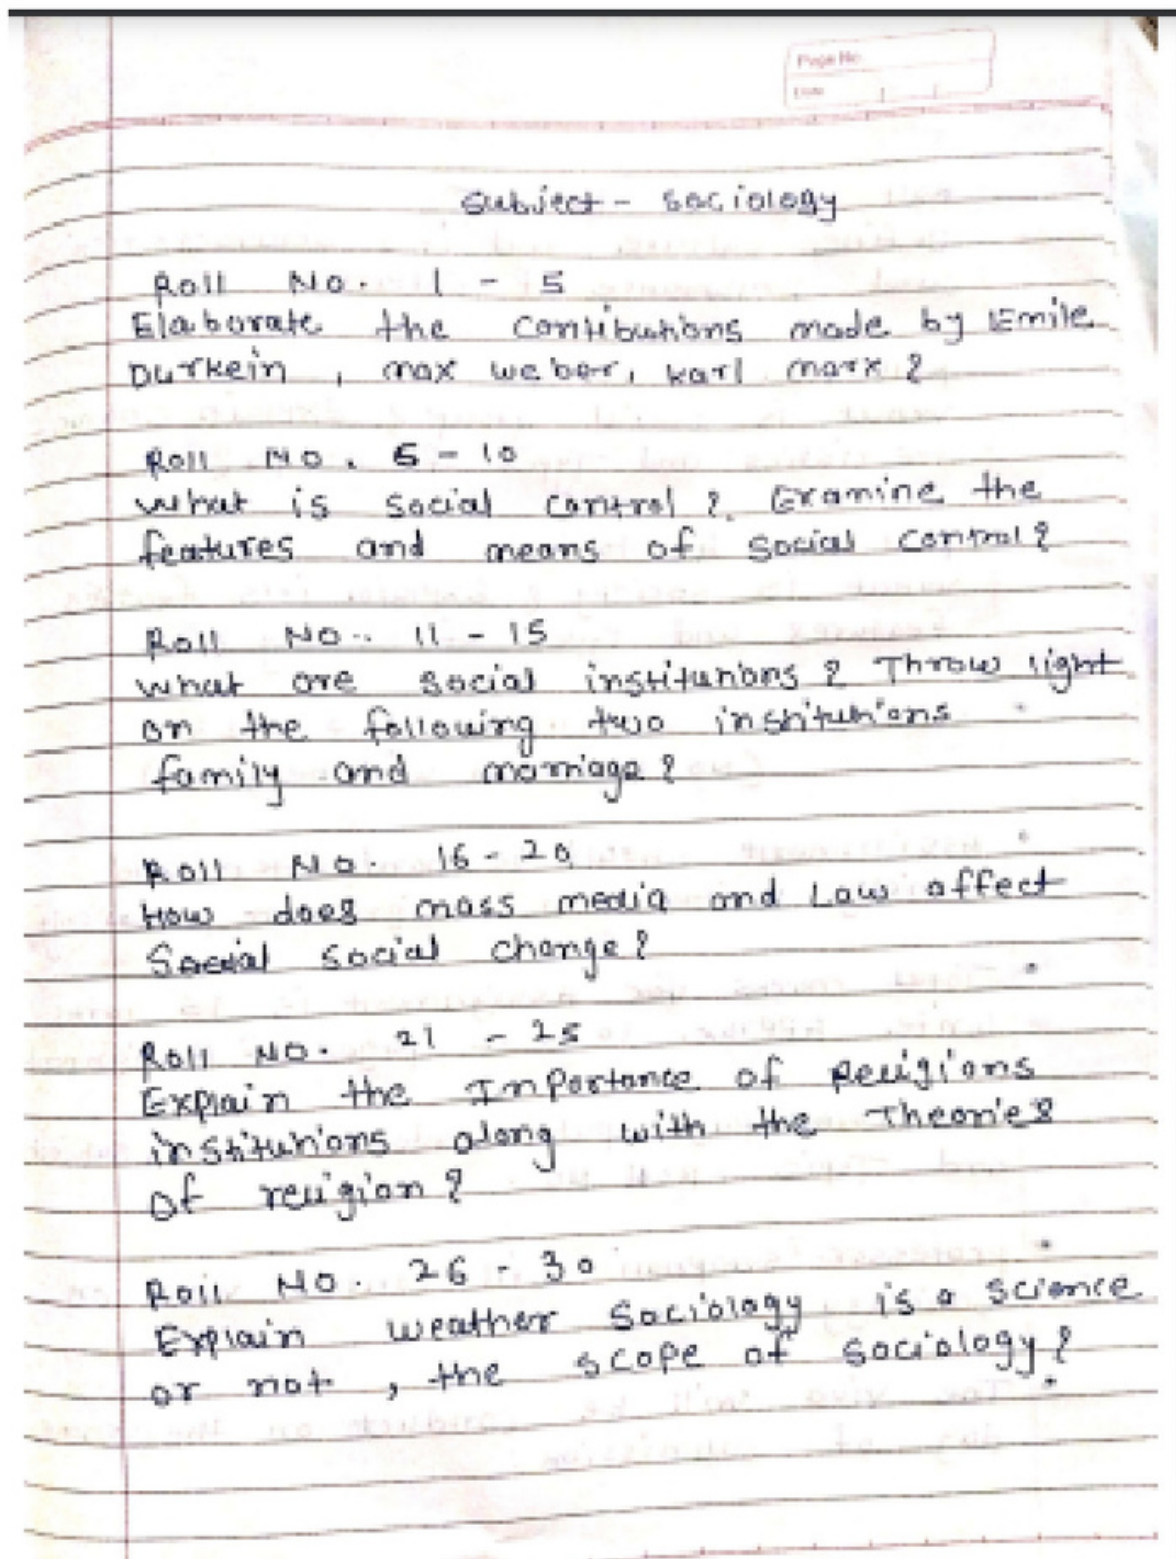 Page No.
Date
Subject - Sociology
Roll No. 1 - 5
Elaborate the contibutions made by Emile
Durkein , max weber, karl marx ?
Roll No. 6 - 10
What is social control ?. Examine the
features and means of social control ?
Roll No.. 11 - 15
what are social institutions ? Throw light
on the following two institutions
family and marriage ?
Roll No. 16 - 20
How does mass media and Law affect
social change ?
Roll No. 21 - 25
Explain the Inportance of Religions
institutions along with the Theories
of religion ?
Roll No. 26 - 30
Explain weather Sociology is a science
or not , the scope of sociology ?